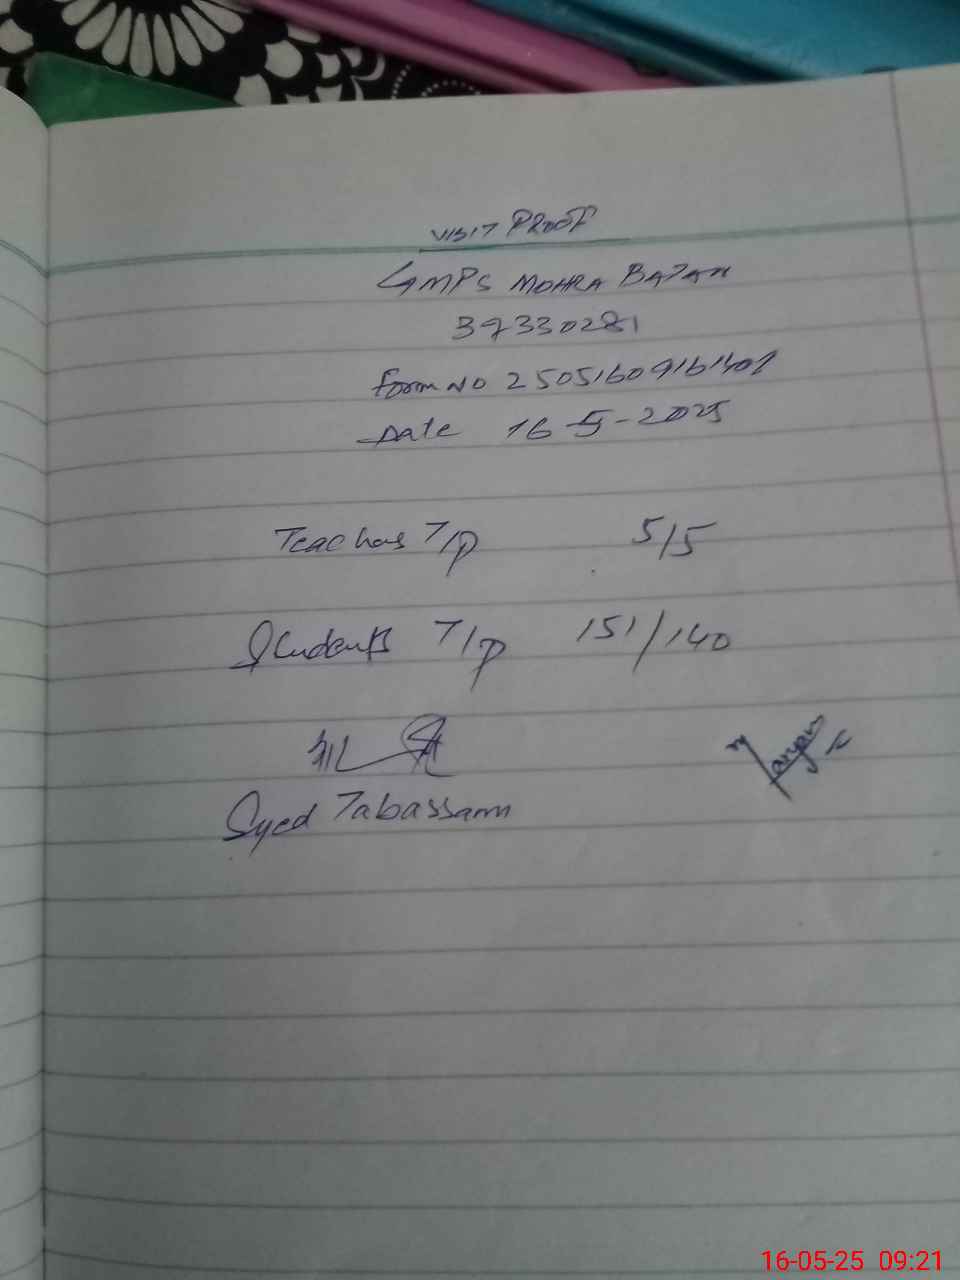 VISIT PROOF
GMPS MOHRA BAJAN
37330281
Form No 25051609161401
Date 16-5-2025
Teachers T/P 5/5
Students T/P 151/140
Syed Tabassam
16-05-25 09:21